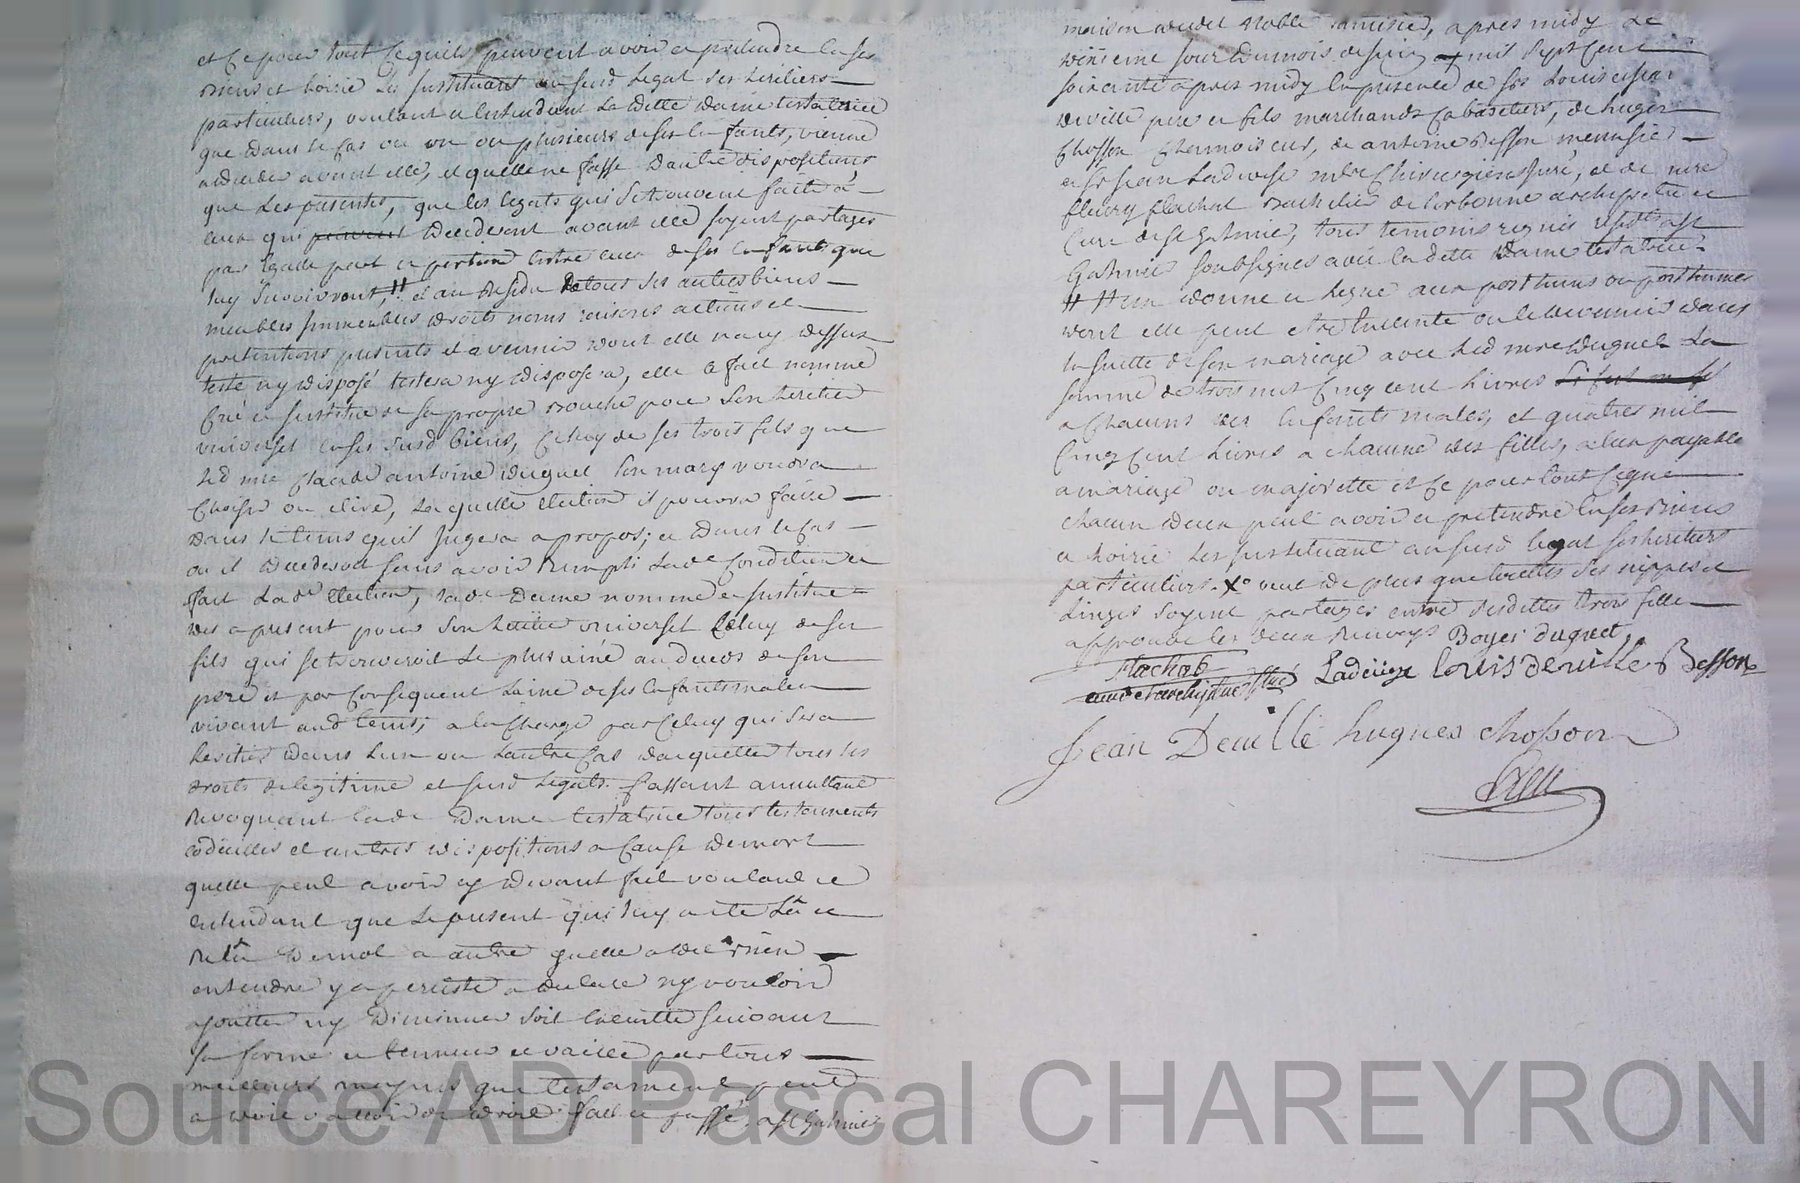 et ce pour tout ce quils peuvent avoir et pretendre en ses
biens et hoirie les instituant au susd legat ses heritiers
particuliers, voulant et entendant ladite dame testatrice
que dans le cas ou un ou plusieurs de ses enfants, vienne
a deceder avant elle, et quelle ne fasse dautre dispositions
que les presentes, que les legats qui se trouvent faits a
ceux qui decederont avant elle soyent partages
par egalle part et portion entre ceux de ses enfants que
luy survivront, # et au residu de tous ses autres biens
meubles immeubles droits noms raisons actions et
pretentions presents et avenir dont elle na cy dessus
testé ny disposé testera ny disposera, elle a fait nommé
créé et institué de sa propre bouche pour son heritier
universel en ses susd biens, celuy de ses trois fils que
led mre claude antoine duguet son mary voudra
choisir ou elire, laquelle election il pourra faire
dans le tems quil jugera a propos; et dans le cas
ou il decederoit sans avoir rempli lade condition et
fait lade election, lade dame nomme et institue
des a present pour son heritier universel celuy de ses
fils qui se trouveroit le plus ainé au deces de son
pere et par consequent lainé de ses enfants males
vivant aud tems; a la charge par celuy qui sera
heritier dans lun ou lautre cas dacquitter tous les
droits de legitime et susd legats. Cassant annullant
revoquant lade dame testatrice tous testaments
codicilles et autres dispositions a cause de mort
quelle peut avoir cy devant fait voulant et
entendant que le present qui luy a été lû et
relû de mot a autre quelle a dit bien
entendre y a persisté a declaré ny vouloir
ajoutter ny diminuer soit executté suivant
sa forme et teneur et vaille par tous
meilleurs moyens que testament peut
avoir valloir de droit fait et passé, a St Galmier
maison dudit noble, apres midy le
vintieme jour du mois de juin mil sept cent
soixante apres midy en presence de srs Louis et jean
deville pere et fils marchands cabaretiers, de hugues
Chosson chamoiseur, de antoine Besson menusier
et sr jean Ladevese mtre chirurgien juré, et de mre
fleury flachat bachelier de sorbonne archipretre et
curé de St Galmier, tous temoins requis a St
Galmier soubsignés avec la dette dame testatrice
# # item donne et legue aux posthums ou posthumes
dont elle peut etre enceinte ou le devenir dans
la suitte de son mariage avec led mre duguet la
somme de trois mil cinq cent livres
a chacuns des enfants males, et quatres mil
cinq cent livres a chacune des filles, a eux payable
a mariage ou majorette et ce pour tout ce que
chacun deux peut avoir et pretendre en ses biens
et hoirie les instituant au susd legat ses heritiers
particuliers. X veut de plus que touttes ses nippes et
linges soyent partages entre sesdittes trois filles
approuvé les deux renvoys Boyer duguet,
flachat
curé et archiprêtre Ladevèze Louis deville Besson
Jean Deville hugues chosson